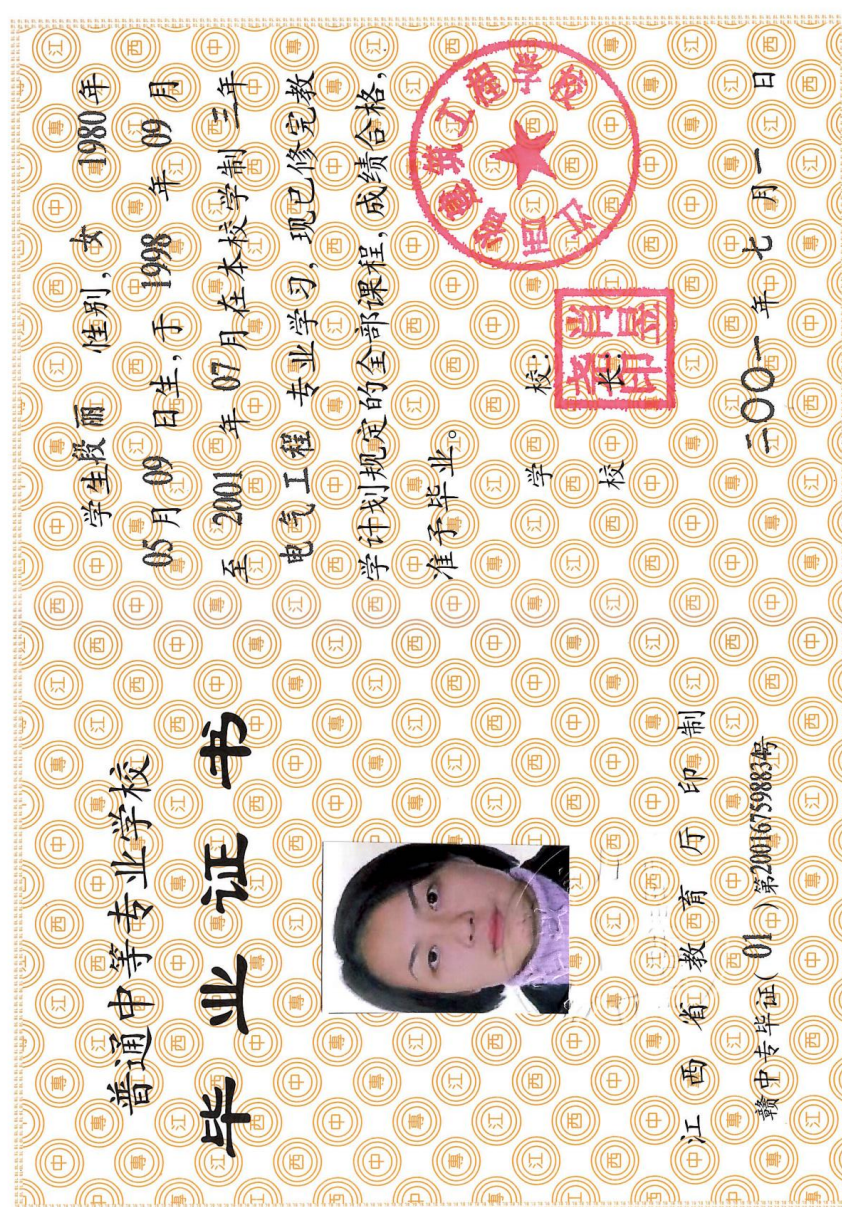 普通中等专业学校
毕业证书
江西省教育厅印制
赣中专毕证(01)第20016759883号
学生段丽 性别,女 1980年
05月09日生,于 1998 年 09 月
至 2001 年 07月在本校学制 三年
电气工程 专业学习,现已修完教
学计划规定的全部课程,成绩合格,
准予毕业。
学 校:
校 长:
二00一年七月一日